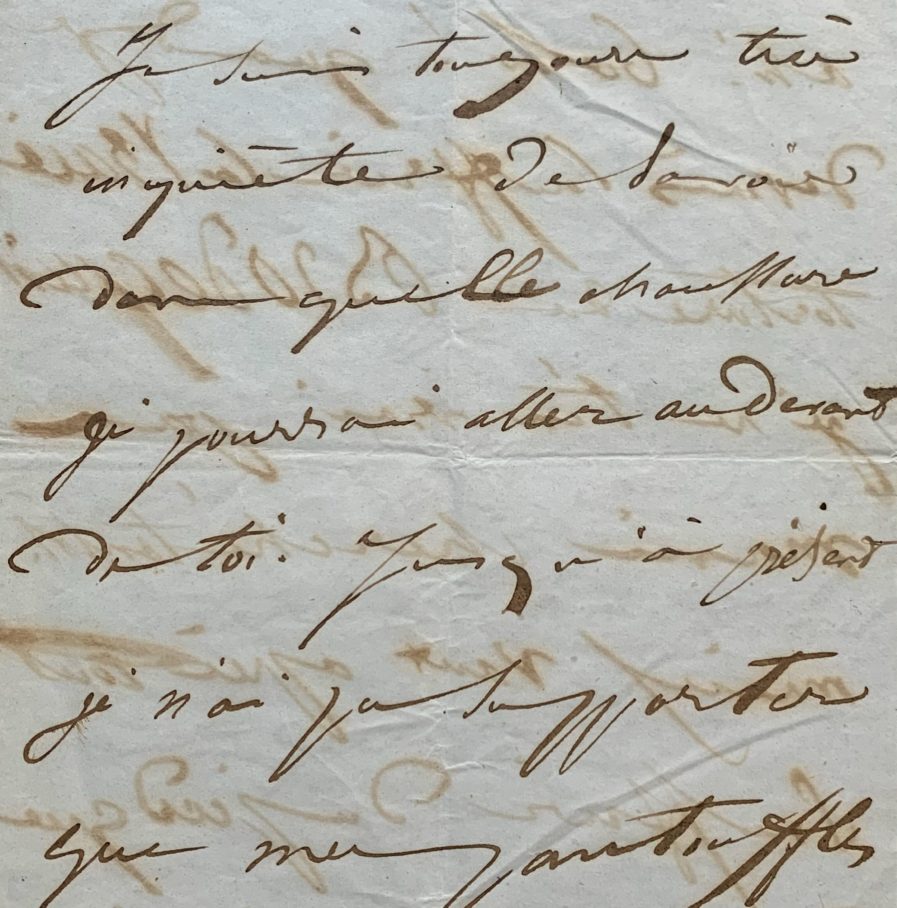 Je suis toujours très
inquiète de savoir
dans quelle chaussure
je pourrai aller au devant
de toi. Jusqu'à présent
je n'ai pu supporter
que mes pantouffles